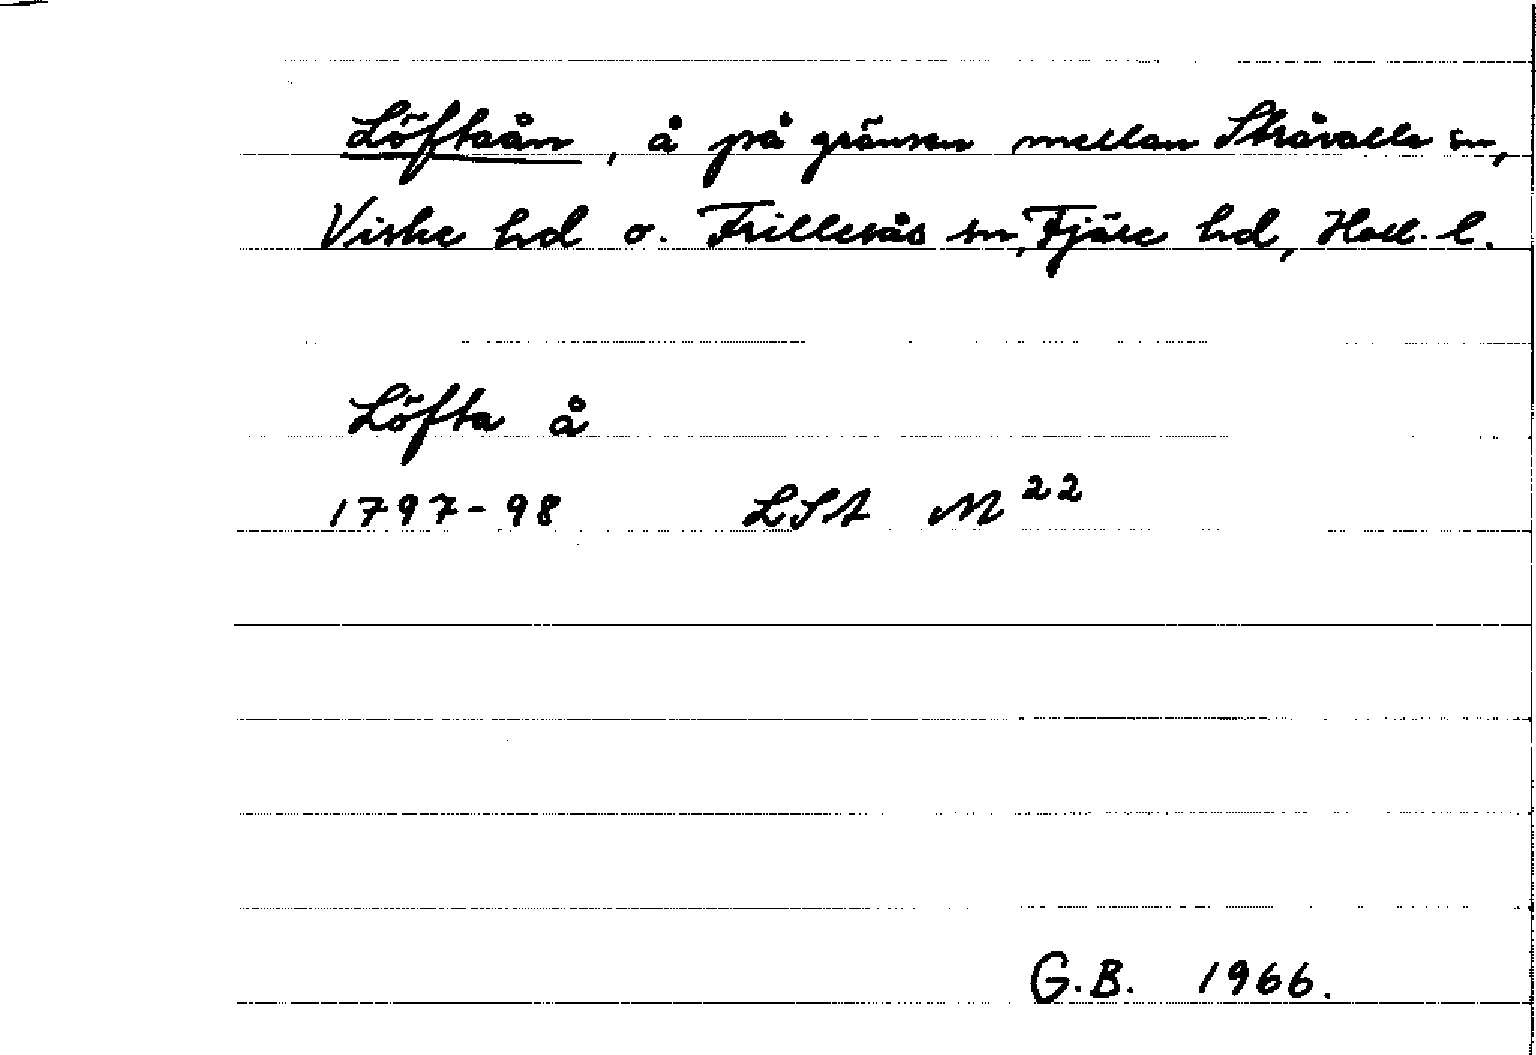 Löftaån, å på gränsen mellan Stråvalla sn,
Viske hd o. Frillesås sn, Fjäre hd, Hall. l.
Löfta å
1797-98 LSA M 22
G.B. 1966.